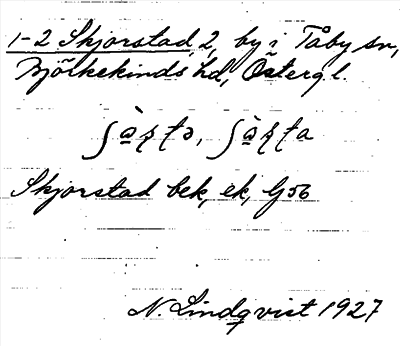 1-2 Skjorstad, 2, by i Tåby sn,
Björkekinds hd, Österg. l.
Skjorstad bek, ek, G56
N. Lindqvist 1927